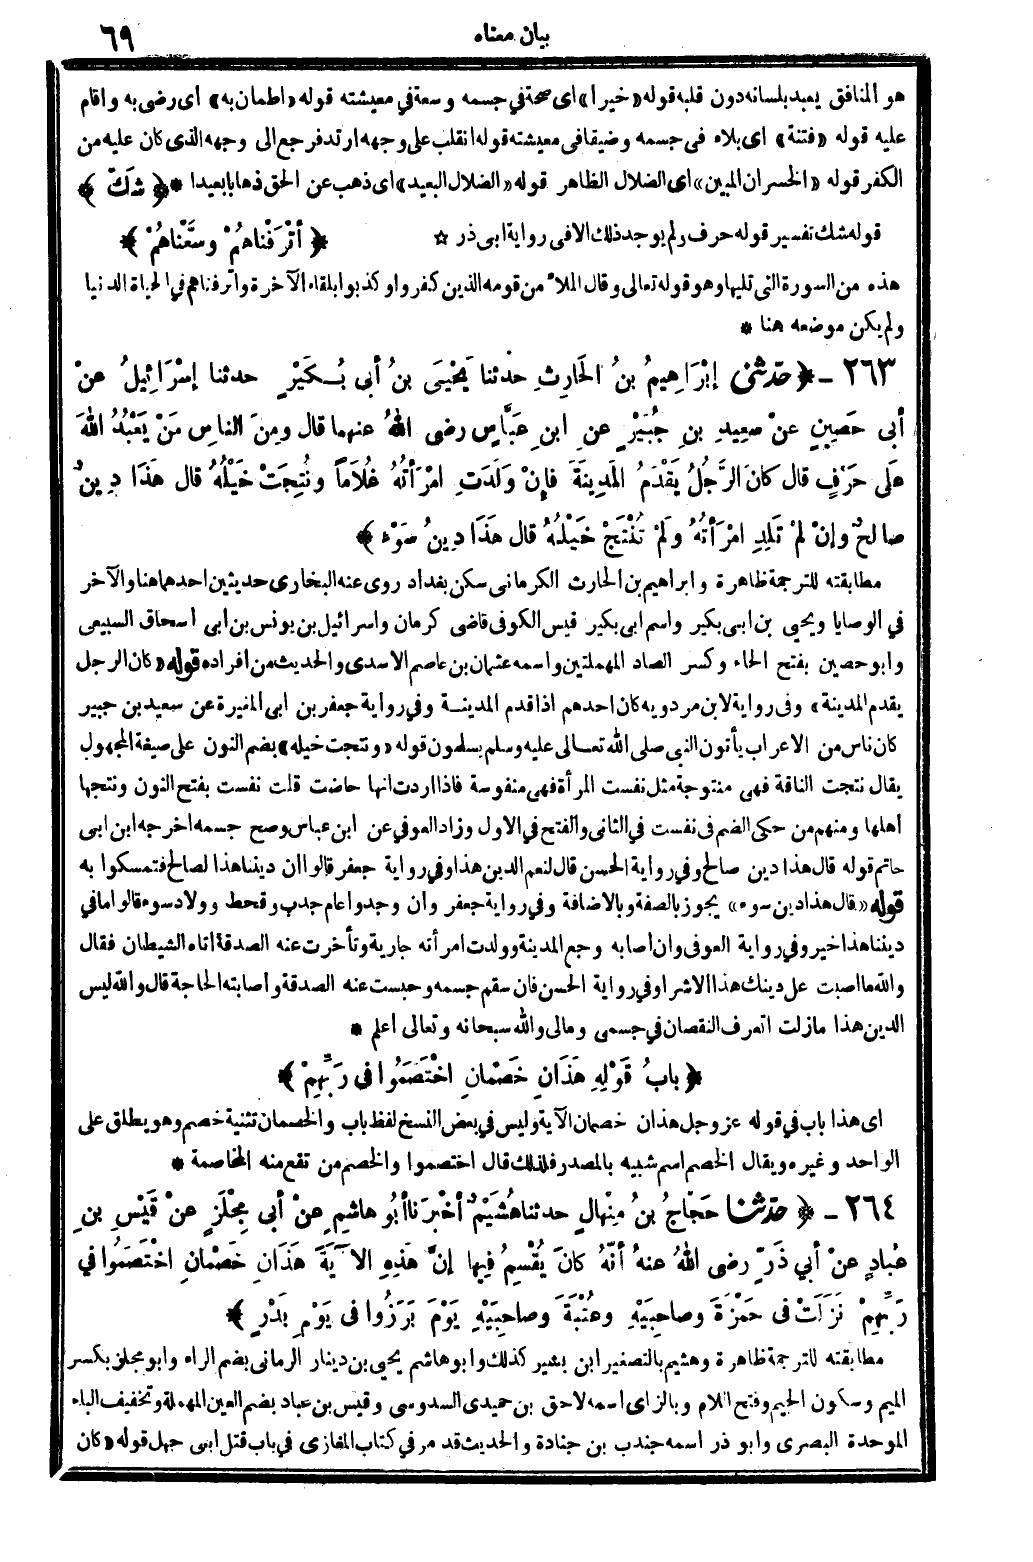 بيان معناه ٦٩
هو المنافق يعبد بلسانه دون قلبه قوله «خيرا» اى صحة في جسمه وسعة في معيشته قوله «اطمان به» اى رضى به واقام
عليه قوله «فتنة» اى بلاء في جسمه وضيقا في معيشته قوله انقلب على وجهه ارتد فرجع الى وجهه الذى كان عليه من
الكفر قوله «الخسران المبين» اى الضلال الظاهر قوله «الضلال البعيد» اى ذهب عن الحق ذهابا بعيدا * ﴿ شَكّ ﴾
قوله شك تفسير قوله حرف ولم يوجد ذلك الا فى رواية ابى ذر ☆ ﴿ أَتْرَفْناهُمْ وسَّعْناهُمْ ﴾
هذه من السورة التى تليها وهو قوله تعالى وقال الملاء من قومه الذين كفروا وكذبوا بلقاء الآخرة واترفناهم في الحياة الدنيا
ولم يكن موضعه هنا *
٢٦٣ ـ ﴿ حدّثني إبْرَاهِيمُ بنُ الحَارِثِ حدثنا يَحْيَى بنُ أبي بُكَيْرٍ حدثنا إسْرَائِيلُ عنْ
أبى حَصِينٍ عنْ سعِيدِ بنِ جُبَيْرٍ عنِ ابنِ عَبَّاسٍ رضى اللهُ عنهما قال ومِنَ الناسِ مَنْ يَعْبُدُ اللهَ
علَى حَرْفٍ قال كانَ الرَّجُلُ يَقْدَمُ المَدِينَةَ فإنْ وَلَدَتِ امْرَأتُهُ غُلَاماً ونُتِجَتْ خَيْلُهُ قال هَذَا دِينٌ
صالحٌ وإنْ لمْ تَلِدِ امْرَأتُهُ ولَمْ تُنْتَجْ خَيْلُهُ قال هَذَا دِينُ سَوْءٍ ﴾
مطابقته للترجمة ظاهرة وابراهيم بن الحارث الكرمانى سكن بغداد روى عنه البخارى حديثين احدهما هنا والآخر
في الوصايا ويحيى بن ابى بكير واسم ابى بكير قيس الكوفى قاضى كرمان واسرائيل بن يونس بن ابى اسحاق السبيعى
وابو حصين بفتح الحاء وكسر الصاد المهملتين واسمه عثمان بن عاصم الاسدى والحديث من افراده قوله «كان الرجل
يقدم المدينة» وفى رواية لابن مردويه كان احدهم اذا قدم المدينة وفي رواية جعفر بن ابى المغيرة عن سعيد بن جبير
كان ناس من الاعراب يأتون النبى صلى الله تعالى عليه وسلم يسلمون قوله «ونتجت خيله» بضم النون على صيغة المجهول
يقال نتجت الناقة فهى منتوجة مثل نفست المرأة فهى منفوسة فاذا اردت انها حاضت قلت نفست بفتح النون ونتجها
اهلها ومنهم من حكى الضم فى نفست في الثانى والفتح في الاول وزاد العوفي عن ابن عباس وصح جسمه اخرجه ابن ابى
حاتم قوله قال هذا دين صالح وفي رواية الحسن قال لنعم الدين هذا وفي رواية جعفر قالوا ان ديننا هذا لصالح فتمسكوا به
قوله «قال هذا دين سوء» يجوز بالصفة وبالاضافة وفي رواية جعفر وان وجدوا عام جدب وقحط وولاد سوء قالوا ما في
ديننا هذا خير وفي رواية العوفى وان اصابه وجع المدينة وولدت امرأته جارية وتأخرت عنه الصدقة اتاه الشيطان فقال
والله ما اصبت على دينك هذا الا شرا وفي رواية الحسن فان سقم جسمه وحبست عنه الصدقة واصابته الحاجة قال والله ليس
الدين هذا مازلت اتعرف النقصان في جسمى ومالى والله سبحانه وتعالى اعلم *
﴿ بابُ قَوْلِهِ هَذَانِ خَصْمَانِ اخْتَصَمُوا في رَبِّهِمْ ﴾
اى هذا باب في قوله عز وجل هذان خصمان الآية وليس في بعض النسخ لفظ باب والخصمان تثنية خصم وهو يطلق على
الواحد وغيره ويقال الخصم اسم شبيه بالمصدر فلذلك قال اختصموا والخصم من تقع منه المخاصمة *
٢٦٤ ـ ﴿ حدّثنا حَجَّاجُ بنُ مِنْهالٍ حدثنا هُشَيْمٌ أخْبرَنا أبُو هاشِمٍ عنْ أبي مِجْلَزٍ عنْ قَيْسِ بنِ
عُبادٍ عنْ أبي ذَرٍّ رضى اللهُ عنهُ أنَّهُ كانَ يُقْسِمُ فِيها إنَّ هَذِهِ الآيَةَ هَذَانِ خَصْمَانِ اخْتَصَمُوا في
رَبِّهِمْ نَزَلَتْ فى حَمْزَةَ وصاحِبَيْهِ وعُتْبَةَ وصاحِبَيْهِ يَوْمَ بَرَزُوا فى يَوْمِ بَدْرٍ ﴾
مطابقته للترجمة ظاهرة وهشيم بالتصغير ابن بشير كذلك وابو هاشم يحيى بن دينار الرمانى بضم الراء وابو مجلز بكسر
الميم وسكون الجيم وفتح اللام وبالزاى اسمه لاحق بن حميدى السدوسى وقيس بن عباد بضم العين المهملة وتخفيف الباء
الموحدة البصرى وابو ذر اسمه جندب بن جنادة والحديث قد مر في كتاب المغازى في باب قتل ابى جهل قوله «كان